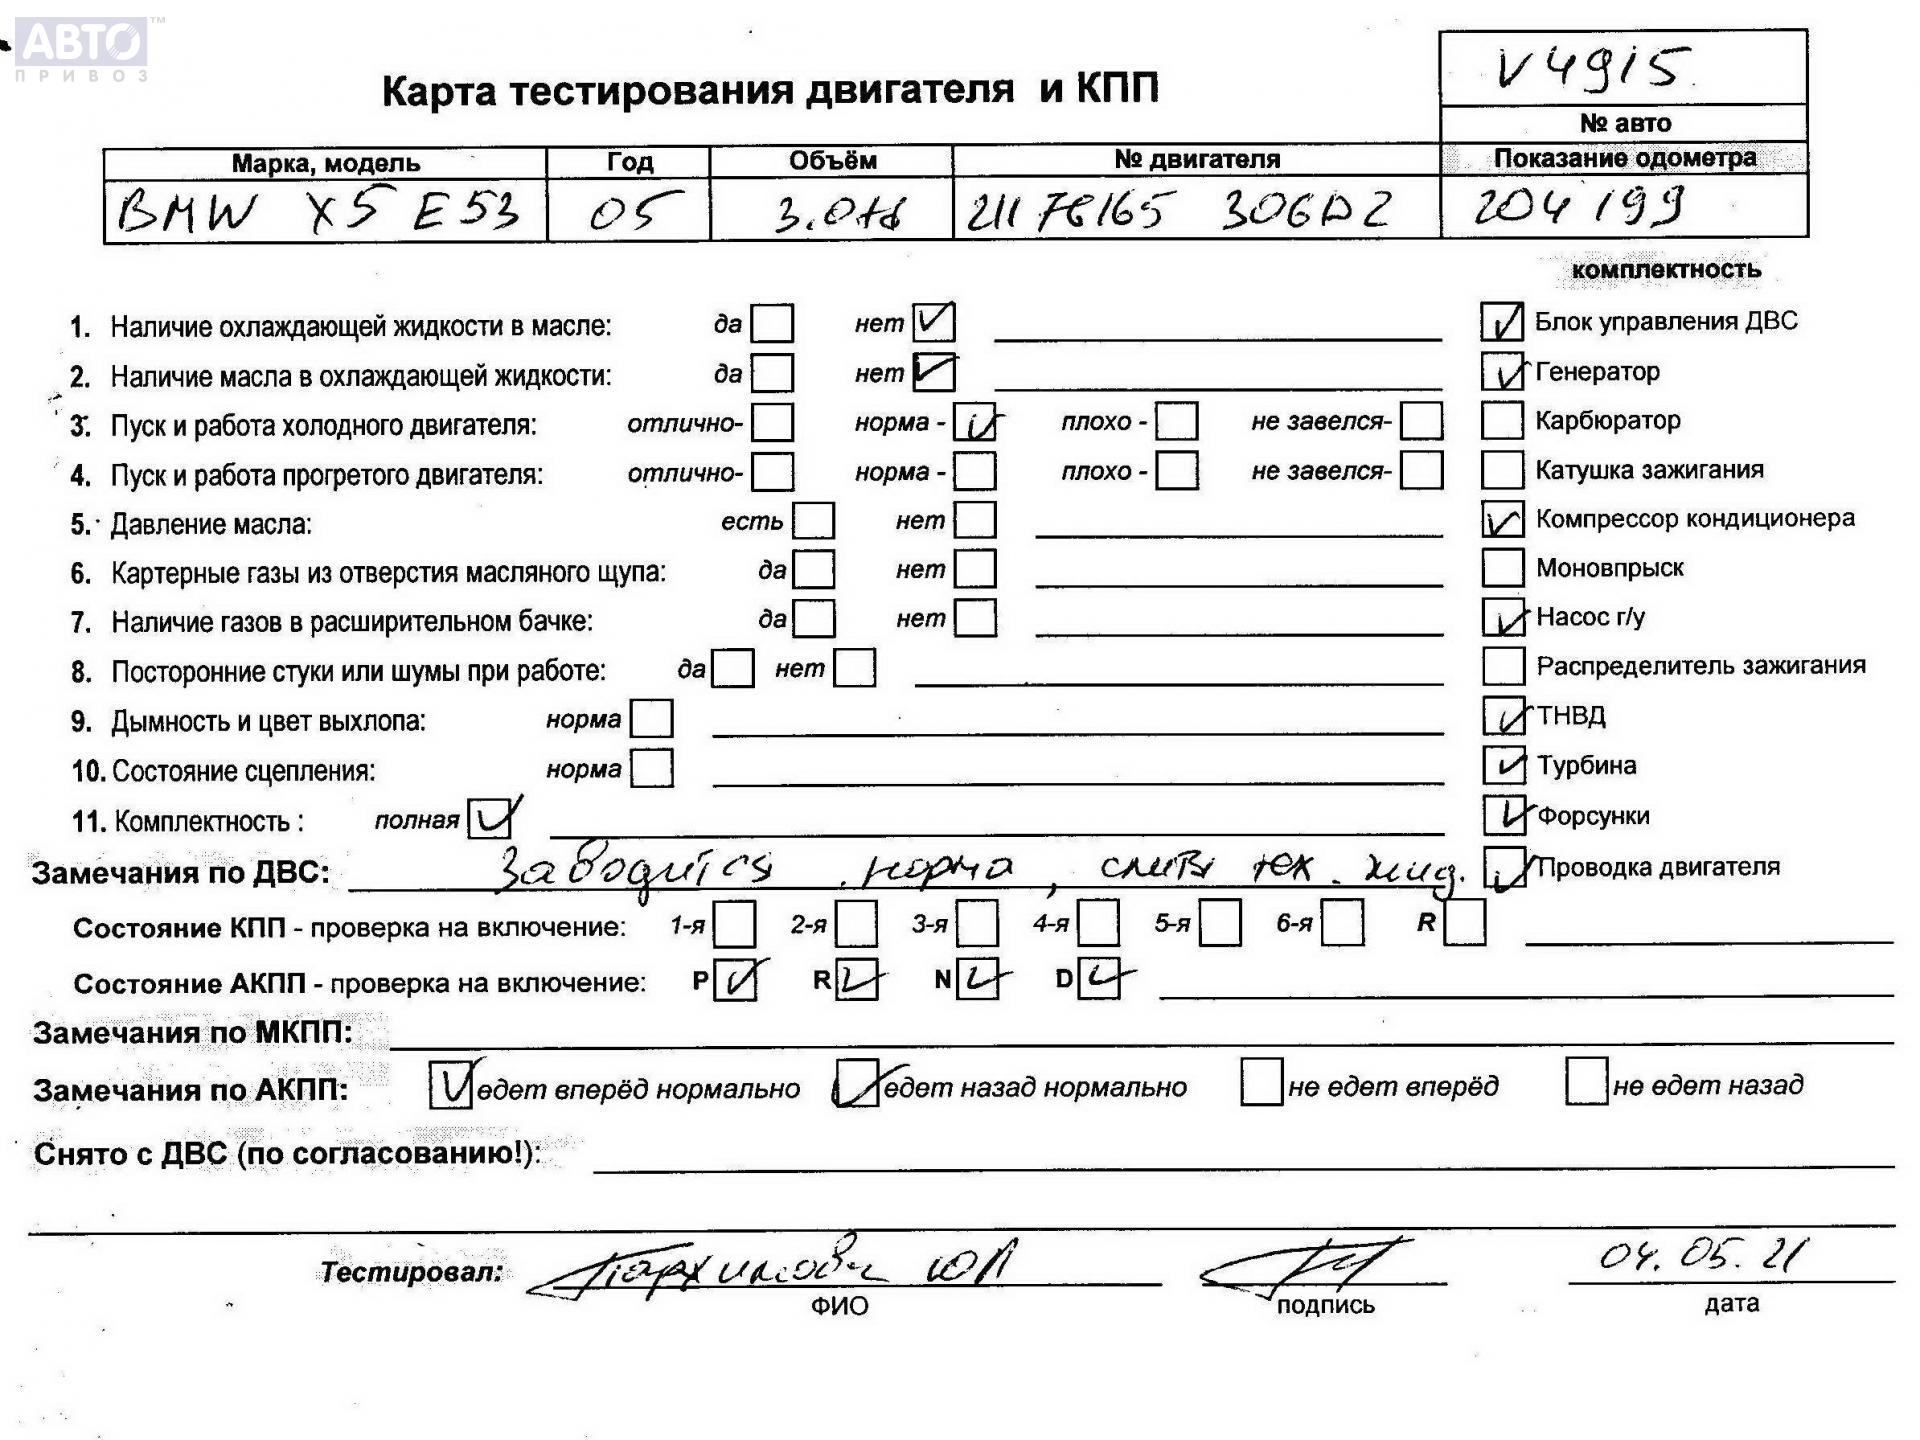 АВТО™
ПРИВОЗ
V4915
Карта тестирования двигателя и КПП
№ авто
Марка, модель Год Объём № двигателя Показание одометра
BMW X5 E53 05 3.0td 21178165 306D2 204199
комплектность
1. Наличие охлаждающей жидкости в масле: да нет Блок управления ДВС
2. Наличие масла в охлаждающей жидкости: да нет Генератор
3. Пуск и работа холодного двигателя: отлично- норма - плохо - не завелся- Карбюратор
4. Пуск и работа прогретого двигателя: отлично- норма - плохо - не завелся- Катушка зажигания
5. Давление масла: есть нет Компрессор кондиционера
6. Картерные газы из отверстия масляного щупа: да нет Моновпрыск
7. Наличие газов в расширительном бачке: да нет Насос г/у
8. Посторонние стуки или шумы при работе: да нет Распределитель зажигания
9. Дымность и цвет выхлопа: норма ТНВД
10. Состояние сцепления: норма Турбина
11. Комплектность : полная Форсунки
Замечания по ДВС: Заводится норма, слиты тех. жид. Проводка двигателя
Состояние КПП - проверка на включение: 1-я 2-я 3-я 4-я 5-я 6-я R
Состояние АКПП - проверка на включение: P R N D
Замечания по МКПП:
Замечания по АКПП: едет вперёд нормально едет назад нормально не едет вперёд не едет назад
Снято с ДВС (по согласованию!):
Тестировал: 04.05.21
ФИО подпись дата